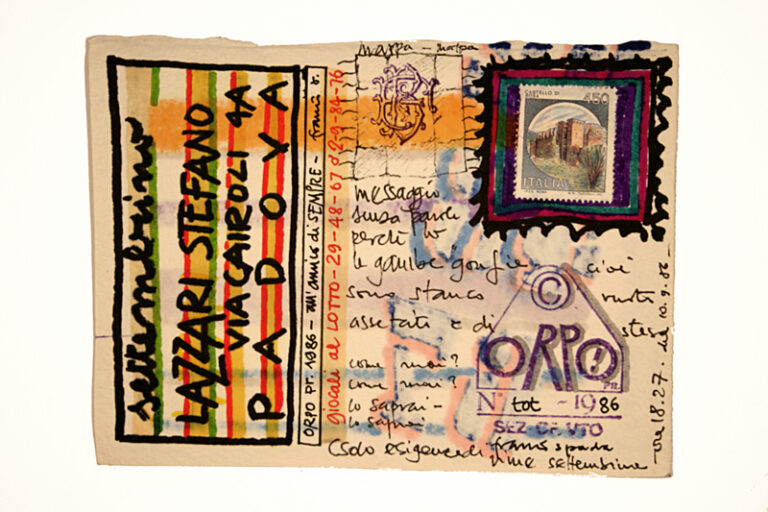 settembrino
LAZZARI STEFANO
VIA CAIROLI 4A
PADOVA
ORPO pr. 1986 - un'amico di SEMPRE - francis s.
giocali al LOTTO - 29-48-67 d 2-9-84-76
marpa - marpa
CASTELLO DI
450
ITALIA
messaggio
senza parole
perchè ho
le gambe gonfie cioè
sono stanco
assetati e di
come mai?
come mai?
lo saprai -
lo saprai
(solo esigenze di francis spada
fine settembrino
©
ORPO!
PR.
N° tot - 1986
ore 18.27. del 10.9.86 -